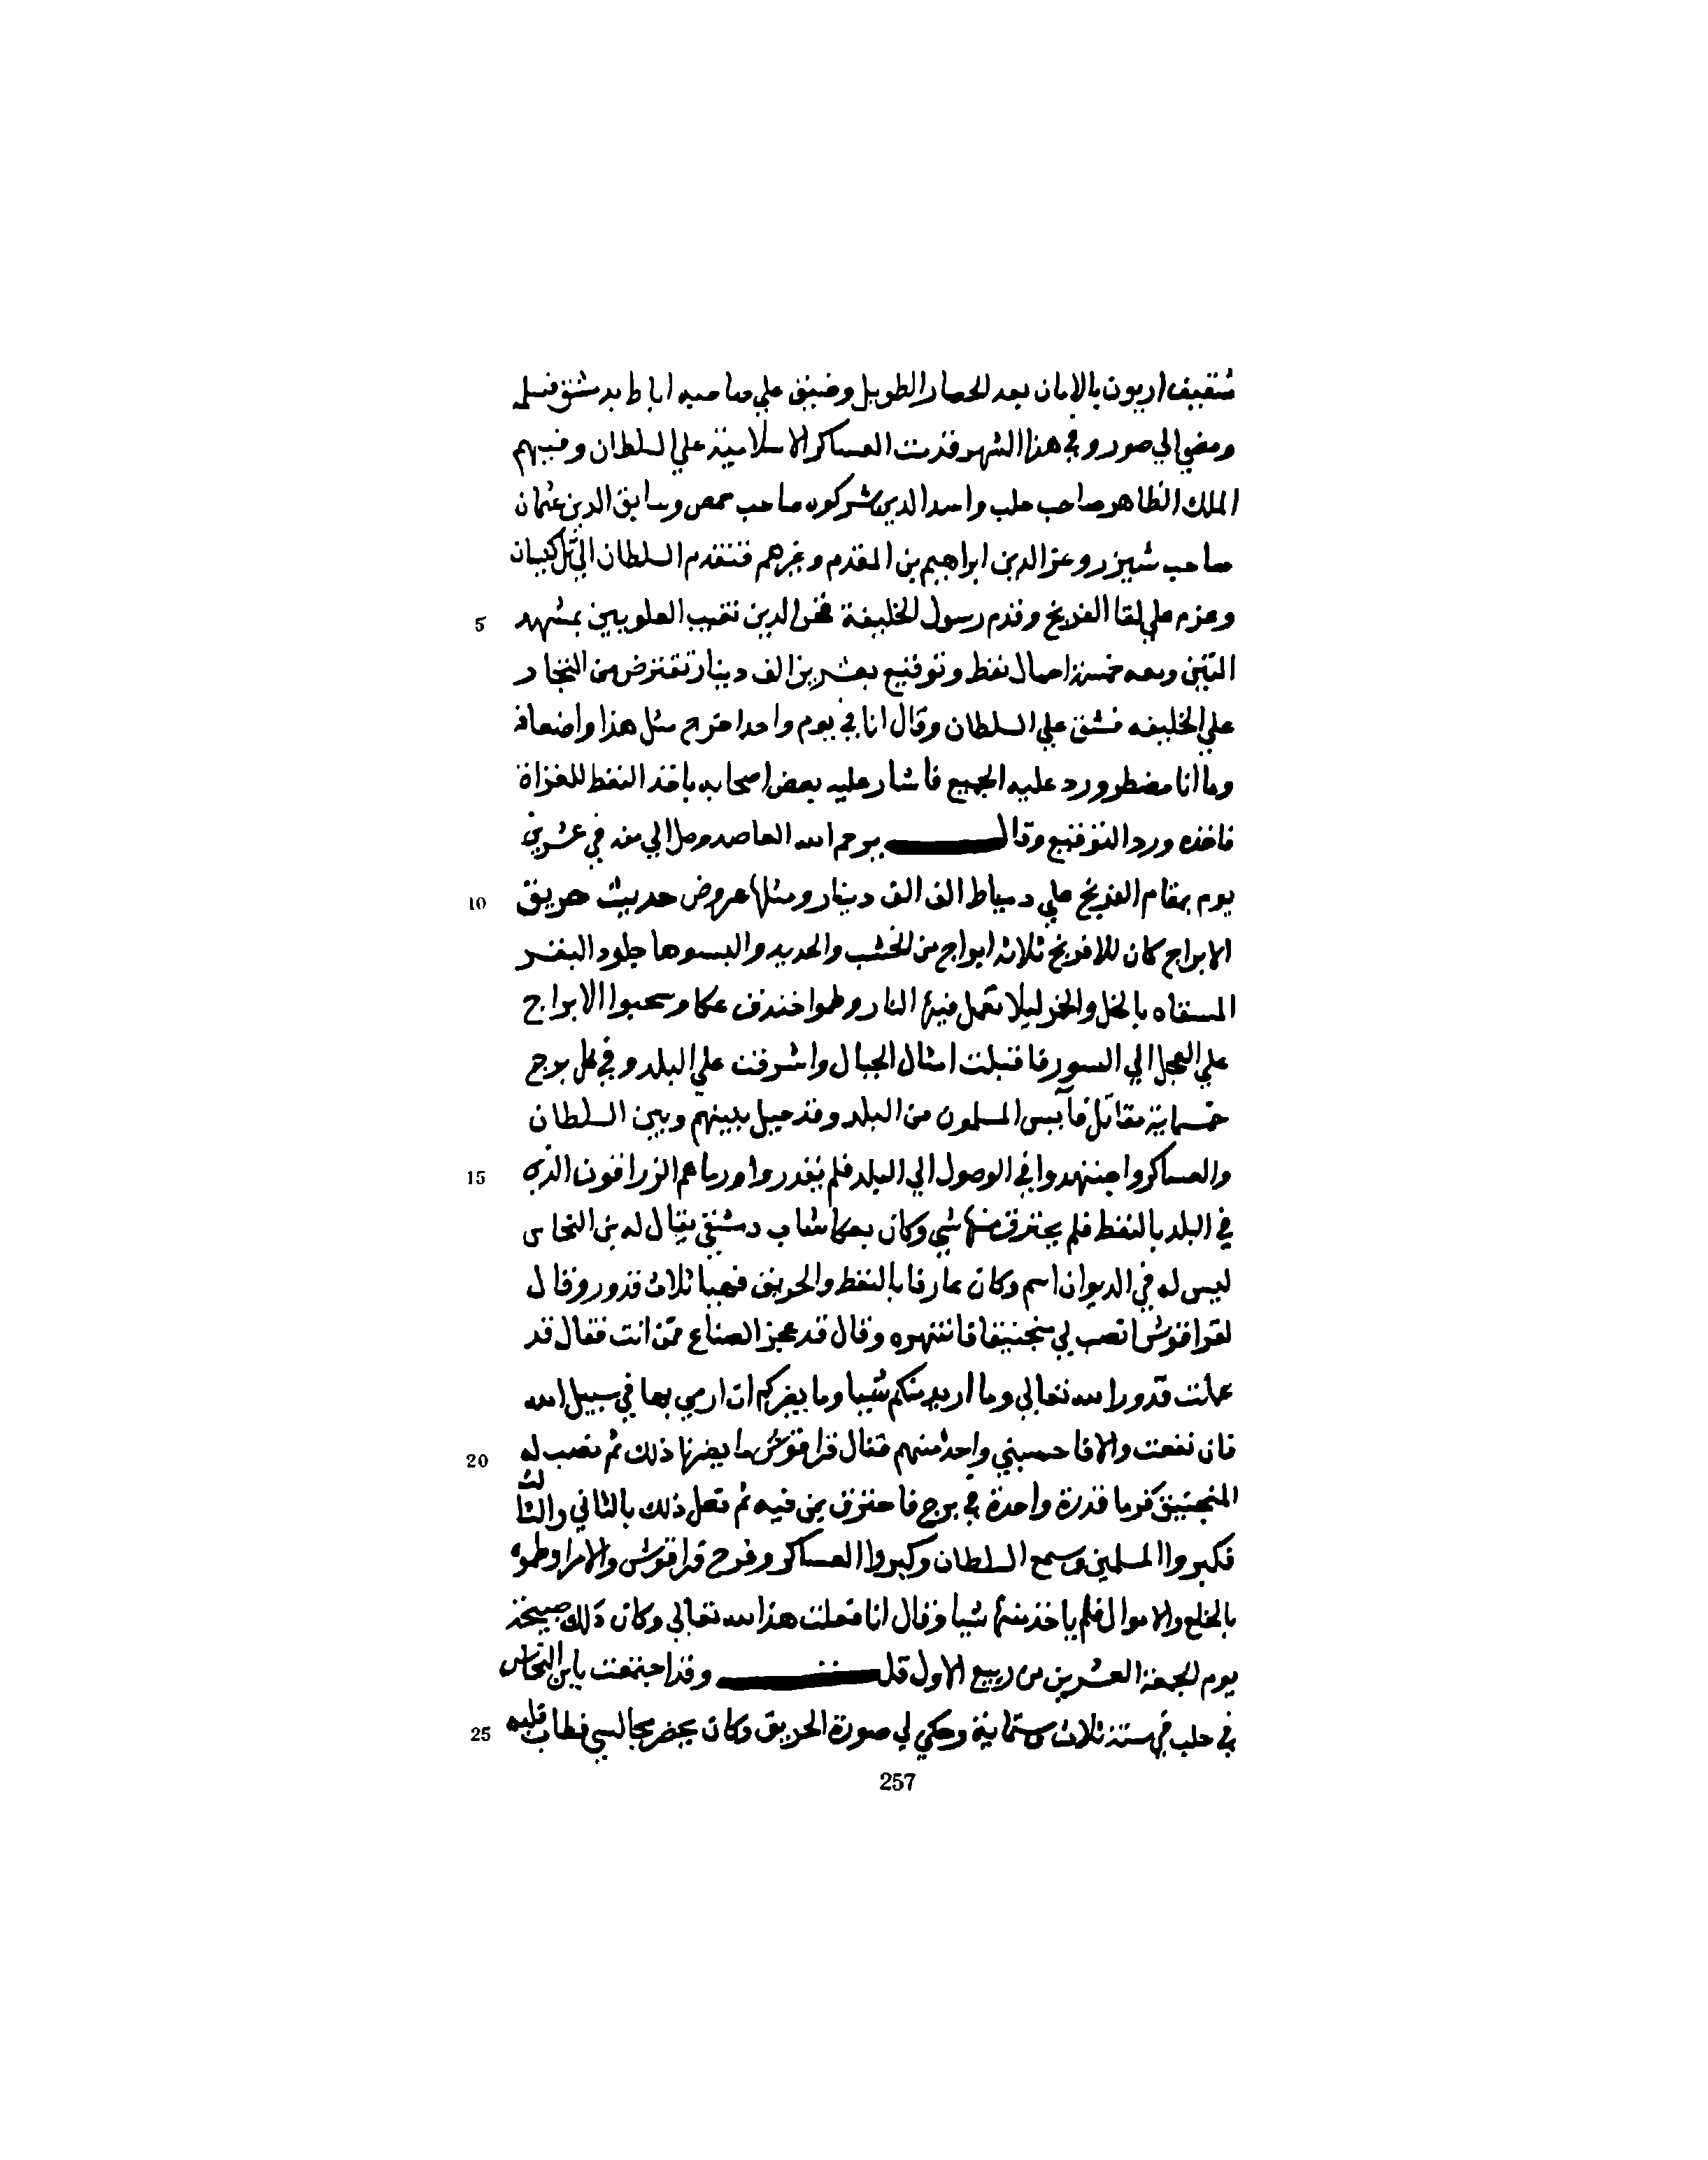 شقيف ارنون بالامان بعد الحصار الطويل وضيق علي صاحبه اباط بدمشق فسلم
ومضي الي صور وفي هذا الشهر قدمت العساكر الاسلامية علي السلطان وفيهم
الملك الظاهر صاحب حلب واسد الدين شركوه صاحب حمص وسابق الدين عثمان
صاحب شيزر وعز الدين ابراهيم بن المقدم وغيرهم فتقدم السلطان الي تل كيسان
5 وعزم علي لقا الفرنج وقدم رسول الخليفة فخر الدين نقيب العلويين بمشهد
التين ومعه خمسة احمال نفط وتوقيع بعشرين الف دينار تقترض من التجار
علي الخليفه فشق علي السلطان وقال انا في يوم واحد اخرج مثل هذا واضعافه
وما انا مضطر ورد عليه الجميع فاشار عليه بعض اصحابه باخذ النفط للغزاة
فاخذه ورد التوقيع وقال يرحم الله العاضد وصل الي منه في عشرين
10 يوم بمقام الفرنج علي دمياط الف الف دينار ومثلها عروض حديث حريق
الابراج كان للافرنج ثلاثة ابراج من الخشب والحديد والبسوها جلود البقر
المسقاه بالخل والخمر ليلا تعمل فيها النار وطموا خندق عكا وسحبوا الابراج
علي العجل الي السور فاقبلت امثال الجبال واشرفت علي البلد وفي كل برج
خمسماية مقاتل فآيس المسلمون من البلد وقد حيل بينهم وبين السلطان
15 والعساكر واجتهدوا في الوصول الي البلد فلم يقدروا ورماهم الزراقون الذي
في البلد بالنفط فلم يحترق منها شي وكان بعكا شاب دمشقي يقال له بن النحاس
ليس له في الديوان اسم وكان عارفا بالنفط والحريق فهيا ثلاث قدور وقال
لقراقوش انصب لي منجنيقا فانتهره وقال قد عجز الصناع فمن انت فقال قد
عملت قدورا لله تعالي وما اريد منكم شيا وما يضركم ان ارمي بها في سبيل الله
20 فان نفعت والا فاحسبني واحد منهم فقال قراقوش ما يضرنا ذلك ثم نصب له
المنجنيق فرما قدرة واحدة في برج فاحترق بمن فيه ثم فعل ذلك بالثاني والثالث
فكبروا المسلمين وسمع السلطان وكبروا العساكر وفرح قراقوش والامرا وطموه
بالخلع والاموال فلم ياخذ منها شيا وقال انا فعلت هذا لله تعالي وكان ذلك صبيحة
يوم الجمعة العشرين من ربيع الاول قلت وقد اجتمعت بابن النحاس
25 في حلب في سنة ثلاث وستماية وحكي لي صورة الحريق وكان يحضر مجالسي فطاب قلبه
257